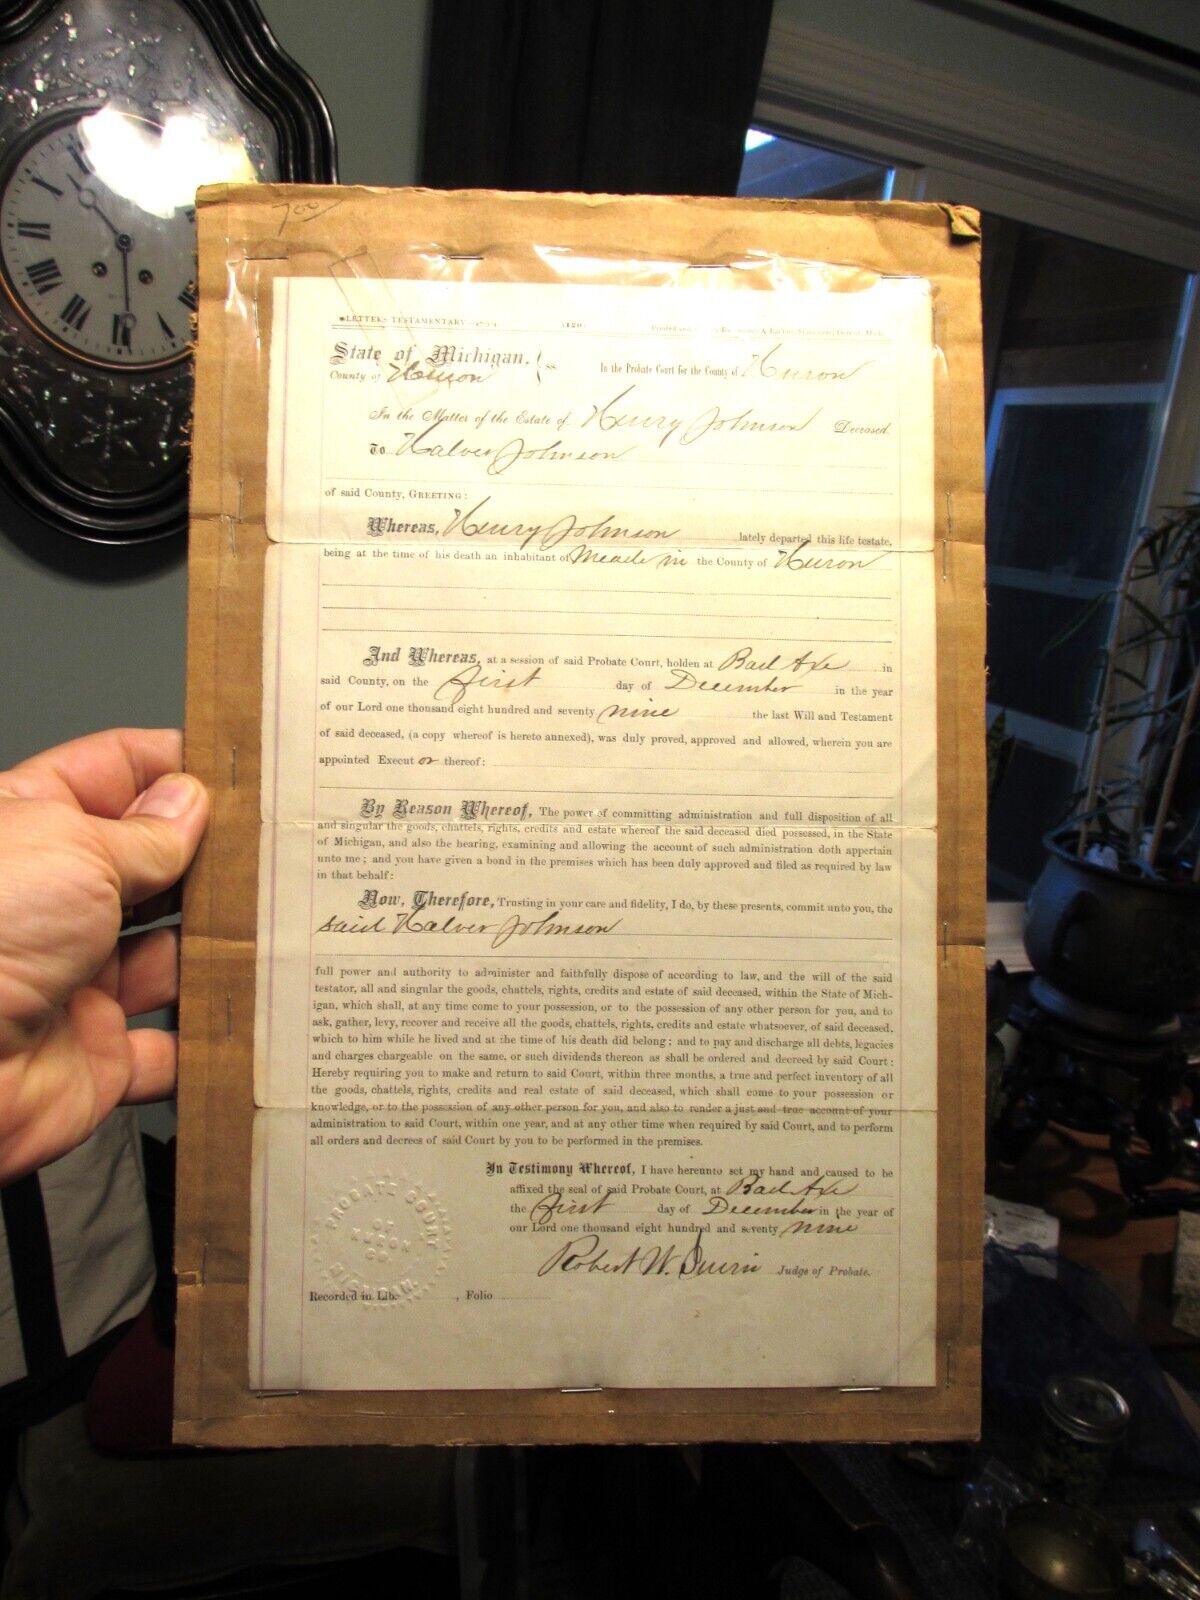 700
LETTERS TESTAMENTARY
(120)
State of Michigan, } ss.
County of Huron
In the Probate Court for the County of Huron
In the Matter of the Estate of Henry Johnson Deceased.
To Halver Johnson
of said County, GREETING:
Whereas, Henry Johnson lately departed this life testate,
being at the time of his death an inhabitant of Meade in the County of Huron
And Whereas, at a session of said Probate Court, holden at Bad Axe in
said County, on the first day of December in the year
of our Lord one thousand eight hundred and seventy nine the last Will and Testament
of said deceased, (a copy whereof is hereto annexed), was duly proved, approved and allowed, wherein you are
appointed Execut or thereof:
By Reason Whereof, The power of committing administration and full disposition of all
and singular the goods, chattels, rights, credits and estate whereof the said deceased died possessed, in the State
of Michigan, and also the hearing, examining and allowing the account of such administration doth appertain
unto me; and you have given a bond in the premises which has been duly approved and filed as required by law
in that behalf:
Now, Therefore, Trusting in your care and fidelity, I do, by these presents, commit unto you, the
said Halver Johnson
full power and authority to administer and faithfully dispose of according to law, and the will of the said
testator, all and singular the goods, chattels, rights, credits and estate of said deceased, within the State of Mich-
igan, which shall, at any time come to your possession, or to the possession of any other person for you, and to
ask, gather, levy, recover and receive all the goods, chattels, rights, credits and estate whatsoever, of said deceased,
which to him while he lived and at the time of his death did belong; and to pay and discharge all debts, legacies
and charges chargeable on the same, or such dividends thereon as shall be ordered and decreed by said Court:
Hereby requiring you to make and return to said Court, within three months, a true and perfect inventory of all
the goods, chattels, rights, credits and real estate of said deceased, which shall come to your possession or
knowledge, or to the possession of any other person for you, and also to render a just and true account of your
administration to said Court, within one year, and at any other time when required by said Court, and to perform
all orders and decrees of said Court by you to be performed in the premises.
In Testimony Whereof, I have hereunto set my hand and caused to be
affixed the seal of said Probate Court, at Bad Axe
the first day of December in the year of
our Lord one thousand eight hundred and seventy nine
Robert W. Judge of Probate.
PROBATE COURT
OF
HURON
CO.
MICHIGAN.
Recorded in Lib. , Folio